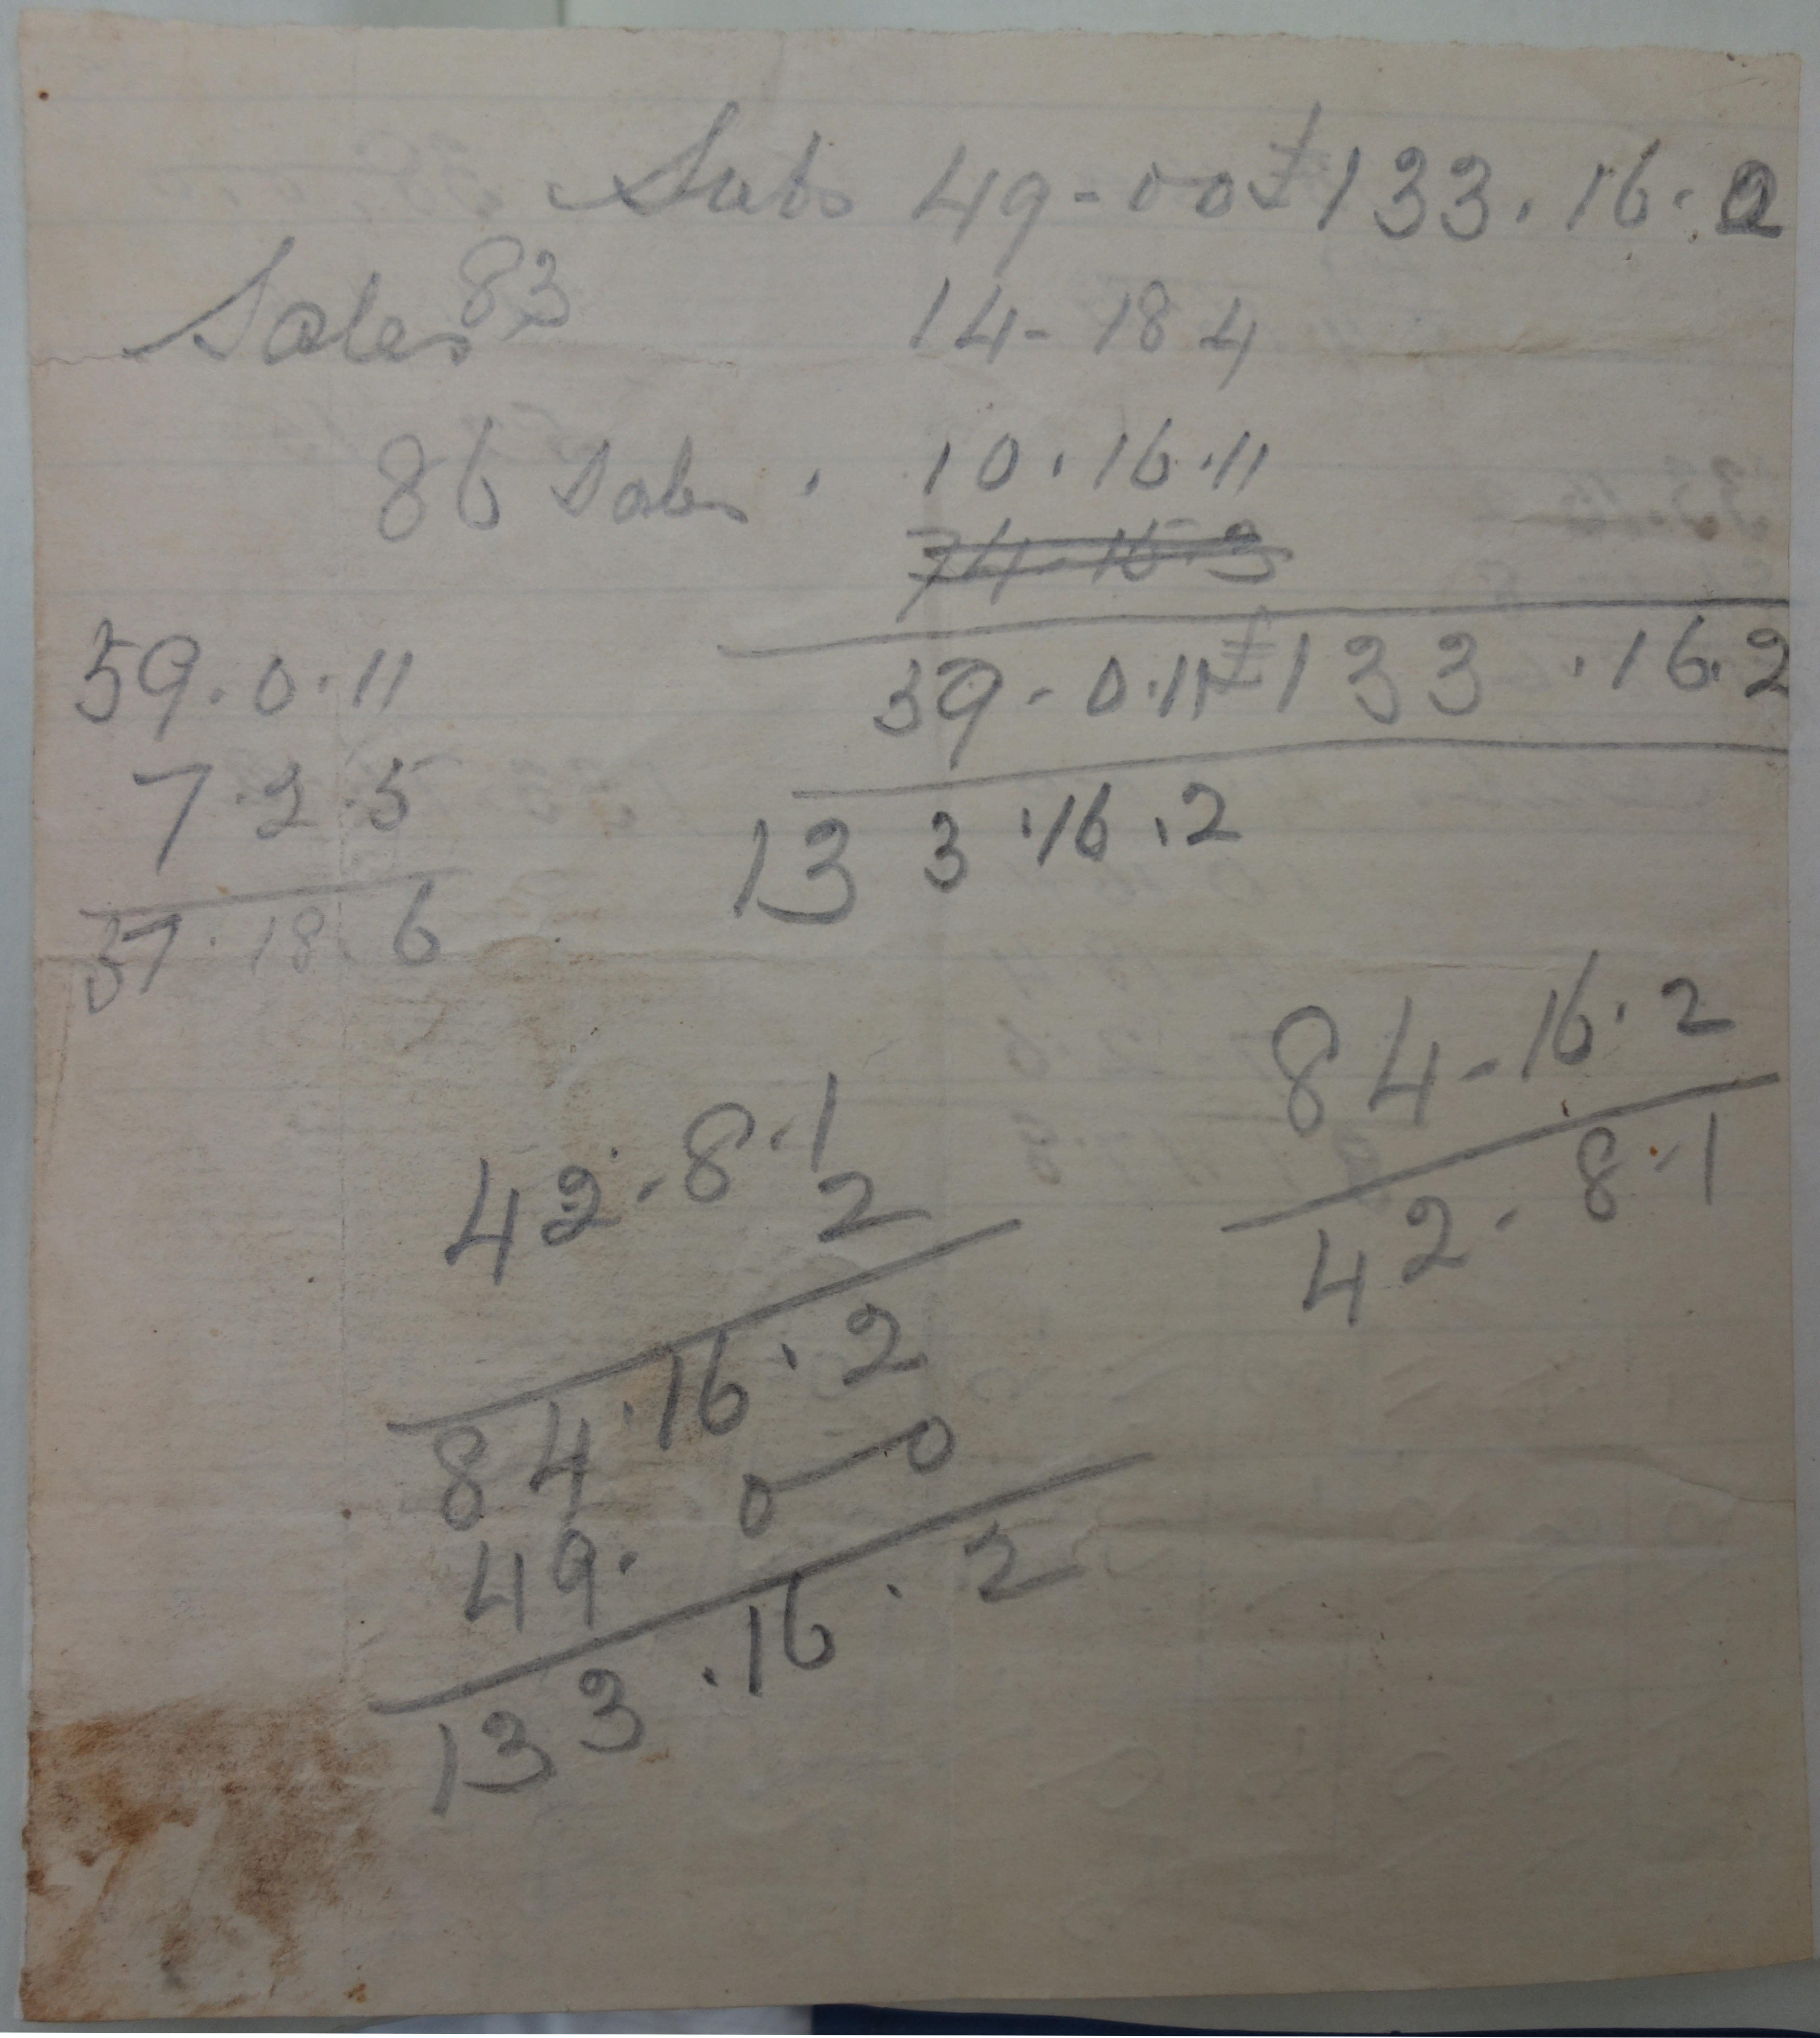 Subs 49-00 £133.16.2
Sales 83 14-184
86 Sales . 10.16.11
74.15.3
59.0.11 £133.16.2
133.16.2
59.0.11
7.2.5
37.18.6
84-16.2
42.8.1
42.8.1
2
84.16.2
49.0—0
133.16.2